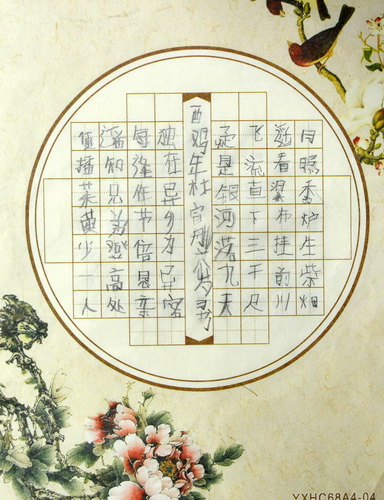 日照香炉生紫烟
遥看瀑布挂前川
飞流直下三千尺
疑是银河落九天
酉鸡年杜
独在异乡为异客
每逢佳节倍思亲
遥知兄弟登高处
遍插茱萸少一人
YXHC68A4-04